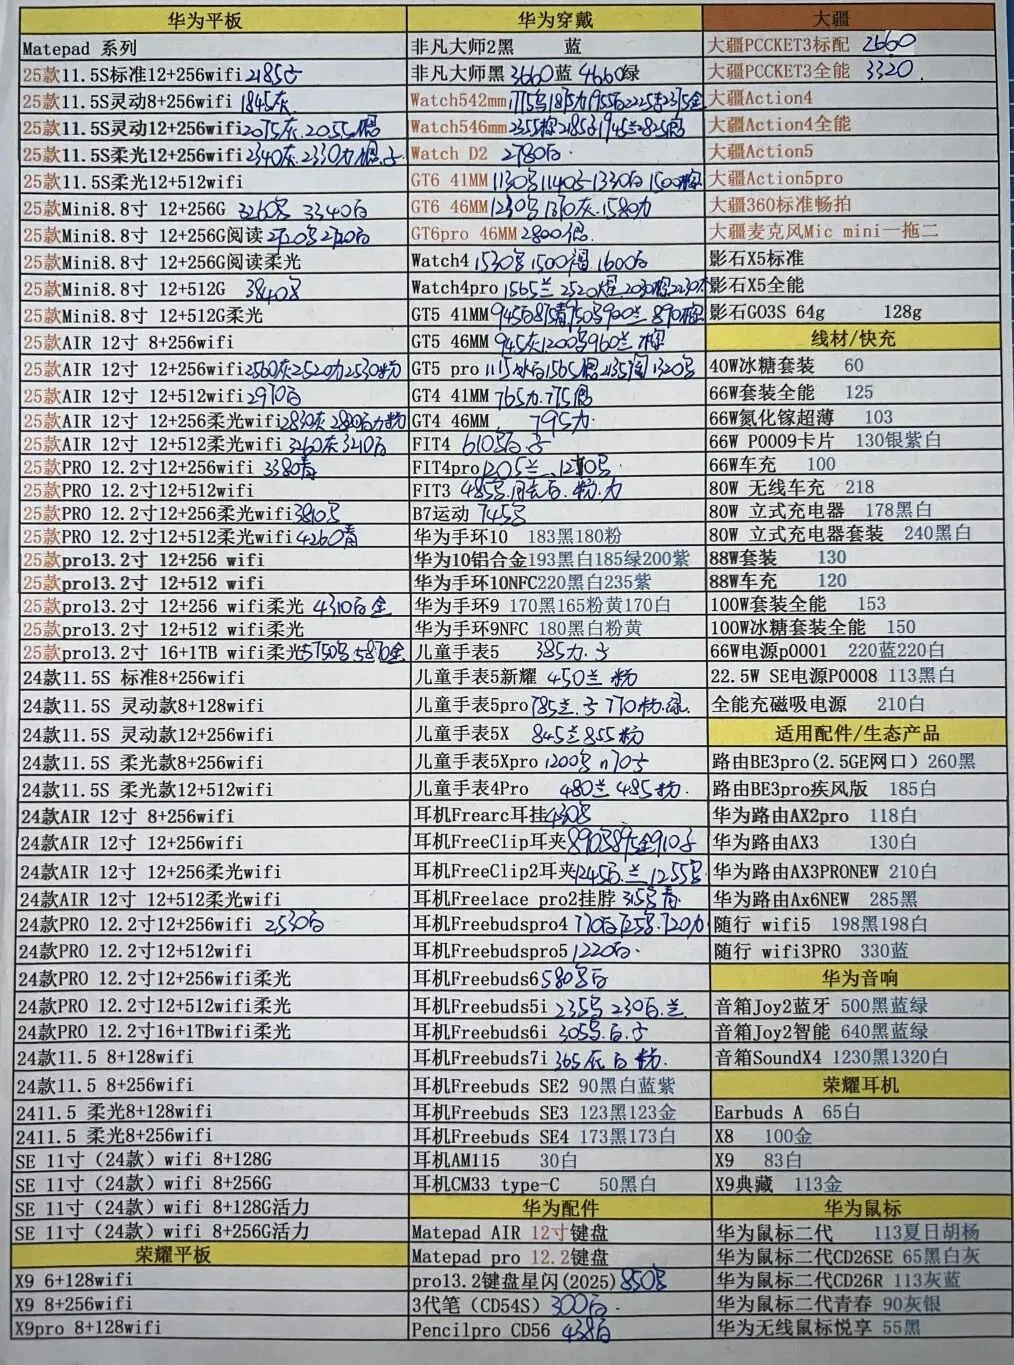 华为平板
Matepad 系列
25款11.5S标准12+256wifi 2185子
25款11.5S灵动8+256wifi 1845灰
25款11.5S灵动12+256wifi 2075灰.2055
25款11.5S柔光12+256wifi 2340灰.2330
25款11.5S柔光12+512wifi
25款Mini8.8寸 12+256G 3260 3340白
25款Mini8.8寸 12+256G阅读
25款Mini8.8寸 12+256G阅读柔光
25款Mini8.8寸 12+512G 3840
25款Mini8.8寸 12+512G柔光
25款AIR 12寸 8+256wifi
25款AIR 12寸 12+256wifi 2560灰2520力2530粉
25款AIR 12寸 12+512wifi 2970白
25款AIR 12寸 12+256柔光wifi 2830灰 2820白力粉
25款AIR 12寸 12+512柔光wifi 3260灰3210白
25款PRO 12.2寸12+256wifi 3380青
25款PRO 12.2寸12+512wifi
25款PRO 12.2寸12+256柔光wifi 3810
25款PRO 12.2寸12+512柔光wifi 4260青
25款pro13.2寸 12+256 wifi
25款pro13.2寸 12+512 wifi
25款pro13.2寸 12+256 wifi柔光 4310白金
25款pro13.2寸 12+512 wifi柔光
25款pro13.2寸 16+1TB wifi柔光 5750 5870金
24款11.5S 标准8+256wifi
24款11.5S 灵动款8+128wifi
24款11.5S 灵动款12+256wifi
24款11.5S 柔光款8+256wifi
24款11.5S 柔光款12+512wifi
24款AIR 12寸 8+256wifi
24款AIR 12寸 12+256wifi
24款AIR 12寸 12+256柔光wifi
24款AIR 12寸 12+512柔光wifi
24款PRO 12.2寸12+256wifi 2530白
24款PRO 12.2寸12+512wifi
24款PRO 12.2寸12+256wifi柔光
24款PRO 12.2寸12+512wifi柔光
24款PRO 12.2寸16+1TBwifi柔光
24款11.5 8+128wifi
24款11.5 8+256wifi
2411.5 柔光8+128wifi
2411.5 柔光8+256wifi
SE 11寸（24款）wifi 8+128G
SE 11寸（24款）wifi 8+256G
SE 11寸（24款）wifi 8+128G活力
SE 11寸（24款）wifi 8+256G活力
荣耀平板
X9 6+128wifi
X9 8+256wifi
X9pro 8+128wifi
华为穿戴
非凡大师2黑 蓝
非凡大师黑 3660蓝 4660绿
Watch542mm
Watch546mm
Watch D2 2780白.
GT6 41MM 1130 1140 1330白 1500
GT6 46MM 1230 1370灰.1580力
GT6pro 46MM 2800
Watch4 1530 1500褐 1600白
Watch4pro 1565兰 2520
GT5 41MM
GT5 46MM 945灰1200 960兰
GT5 pro
GT4 41MM 765力.775
GT4 46MM 795力.
FIT4 610
FIT4pro 1205兰
FIT3 485
B7运动 745
华为手环10 183黑180粉
华为10铝合金193黑白185绿200紫
华为手环10NFC220黑白235紫
华为手环9 170黑165粉黄170白
华为手环9NFC 180黑白粉黄
儿童手表5 385力.子
儿童手表5新耀 450兰 粉
儿童手表5pro 785兰.子 770粉.绿
儿童手表5X 845兰855粉
儿童手表5Xpro 1200 1170子
儿童手表4Pro 480兰 485粉.
耳机Frearc耳挂430
耳机FreeClip耳夹890 895金910子
耳机FreeClip2耳夹1245白.兰 1255
耳机Freelace pro2挂脖 315 青
耳机Freebudspro4 770白725 720力
耳机Freebudspro5 1220白.
耳机Freebuds6 580 白
耳机Freebuds5i 235 230白.兰
耳机Freebuds6i 305 .白.子
耳机Freebuds7i 365灰 白 粉.
耳机Freebuds SE2 90黑白蓝紫
耳机Freebuds SE3 123黑123金
耳机Freebuds SE4 173黑173白
耳机AM115 30白
耳机CM33 type-C 50黑白
华为配件
Matepad AIR 12寸键盘
Matepad pro 12.2键盘
pro13.2键盘星闪(2025) 850
3代笔（CD54S） 300白.
Pencilpro CD56 438白
大疆
大疆PCCKET3标配 2660
大疆PCCKET3全能 3320.
大疆Action4
大疆Action4全能
大疆Action5
大疆Action5pro
大疆360标准畅拍
大疆麦克风Mic mini一拖二
影石X5标准
影石X5全能
影石GO3S 64g 128g
线材/快充
40W冰糖套装 60
66W套装全能 125
66W氮化镓超薄 103
66W P0009卡片 130银紫白
66W车充 100
80W 无线车充 218
80W 立式充电器 178黑白
80W 立式充电器套装 240黑白
88W套装 130
88W车充 120
100W套装全能 153
100W冰糖套装全能 150
66W电源p0001 220蓝220白
22.5W SE电源P0008 113黑白
全能充磁吸电源 210白
适用配件/生态产品
路由BE3pro(2.5GE网口) 260黑
路由BE3pro疾风版 185白
华为路由AX2pro 118白
华为路由AX3 130白
华为路由AX3PRONEW 210白
华为路由Ax6NEW 285黑
随行 wifi5 198黑198白
随行 wifi3PRO 330蓝
华为音响
音箱Joy2蓝牙 500黑蓝绿
音箱Joy2智能 640黑蓝绿
音箱SoundX4 1230黑1320白
荣耀耳机
Earbuds A 65白
X8 100金
X9 83白
X9典藏 113金
华为鼠标
华为鼠标二代 113夏日胡杨
华为鼠标二代CD26SE 65黑白灰
华为鼠标二代CD26R 113灰蓝
华为鼠标二代青春 90灰银
华为无线鼠标悦享 55黑